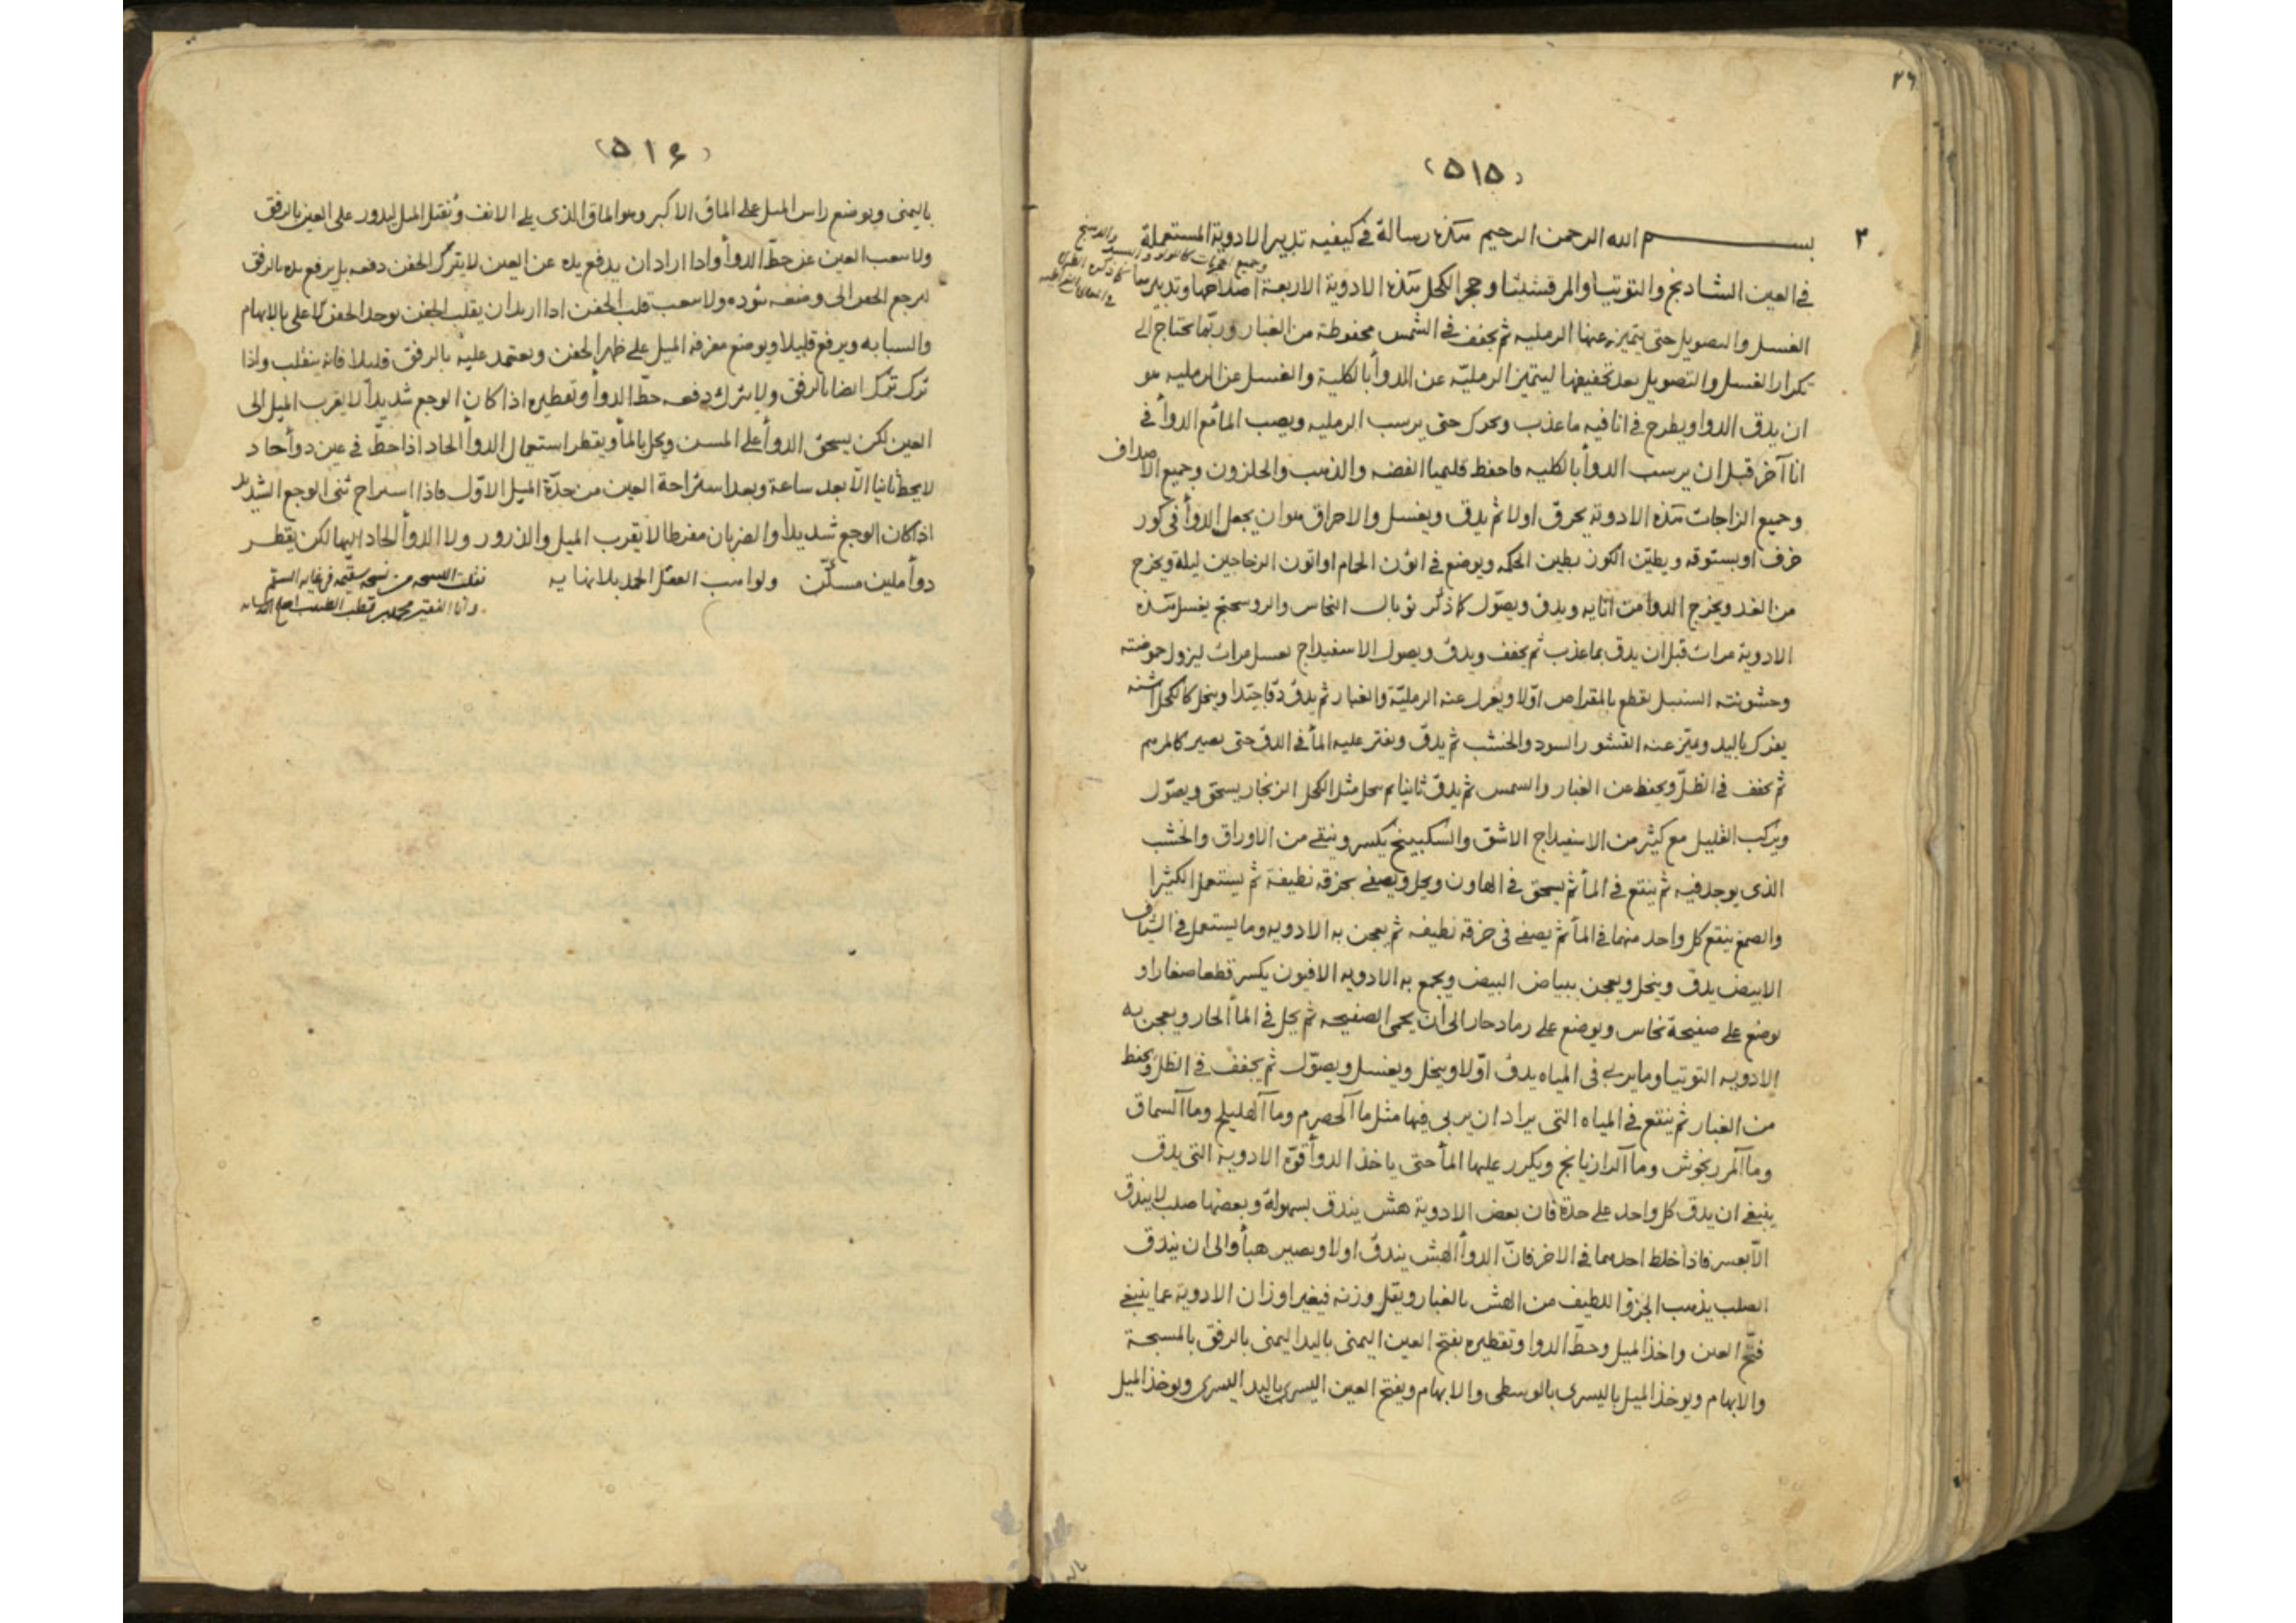 ٢٦
(٥١٥)
٣
بسم الله الرحمن الرحيم هذه رسالة في كيفيه تدبير الادوية المستعملة
في العين الشادنج والتوتيا والمرقشيثا وحجر الكحل هذه الادوية الاربعة اصلاحها وتدبيرها
الغسل والتصويل حتى يتميز عنها الرمليه ثم يجفف في الشمس محفوظة من الغبار وربما يحتاج الى
تكرار الغسل والتصويل بعد تجفيفها ليتميز الرمليّة عن الدوأ بالكلية والغسل عن الرمليه هو
ان يدق الدوا ويطرح في انا فيه ما عذب ويحرك حتى يرسب الرمليه ويصب المأ مع الدوأ في
انا آخر قبل ان يرسب الدوأ بالكليه فاحفظ قليميا الفضه والذهب والحلزون وجميع الاصداف
وجميع الزاجات هذه الادوية يحرق اولا ثم يدق ويغسل والاحراق هو ان يجعل الدوأ في كوز
خزف او بستوقه ويطيّن الكوز بطين الحكمه ويوضع في اتون الحمام او اتون الزجاجين ليلة ويخرج
من الغد ويخرج الدوا من انايه ويدق ويصوّل كما ذكر توبال النحاس والروسختج يغسل هذه
الادوية مرات قبل ان يدق بما عذب ثم يجفف ويدق ويصول الاسفيداج يغسل مرات ليزول حموضته
وخشونته السنبل يقطع بالمقراض اوّلا ويعزل عنه الرمليّة والغبار ثم يدقّ دقّا جيّدا وينخل كالكحل اشنه
يفرك باليد ويميز عنه القشور السود والخشب ثم يدقّ ويقتر عليه المأ في الدق حتى يصير كالمرهم
ثم يجفف في الظلّ ويحفظ عن الغبار والشمس ثم يدقّ ثانيا ثم ينخل مثل الكحل الزنجار يسحق ويصوّل
ويركب القليل مع كثير من الاسفيداج الاشق والسكبينج يكسر وينقى من الاوراق والخشب
الذى يوجد فيه ثم ينقع في المأ ثم يسحق في الهاون ويحل ويصفى بخرقه نظيفة ثم يستعمل الكثيرا
والصمغ ينقع كل واحد منهما في المأ ثم يصفى في خرقه نظيفه ثم يعجن به الادويه وما يستعمل في الشياف
الابيض يدقّ وينخل ويعجن ببياض البيض ويجمع به الادويه الافيون يكسر قطعا صغارا و
يوضع على صفيحة نحاس ويوضع على رماد حار الى ان يحمى الصفيحه ثم يحل في المأ الحار ويعجن به
الادويه التوتيا وما يربى في المياه يدق اوّلا وينخل ويغسل ويصوّل ثم يجفف في الظلّ ويحفظ
من الغبار ثم ينقع في المياه التى يراد ان يربى فيها مثل ما آلحصرم وما آلهليلج وما آلسماق
وما آلمرزنجوش وما آلرازيانج ويكرر عليها المأ حتى ياخذ الدوأ قوّة الادوية التى يدق
ينبغى ان يدق كل واحد على حدة فان بعض الادوية هش يندق بسهولة وبعضها صلب لا يندق
الّا بعسر فاذا خلط احدهما في الاخر فانّ الدوأ الهش يندقّ اولا ويصير هبأ والى ان يندق
الصلب يذهب الجزؤ اللطيف من الهش بالغبار ويقل وزنه فيغير اوزان الادوية عما ينبغى
فتح العين واخذ الميل وحطّ الدوا وتقطيره يفتح العين اليمنى باليد اليمنى بالرفق بالمسبحة
والابهام ويوخذ الميل باليسرى بالوسطى والابهام ويفتح العين اليسرى باليد اليسرى ويوخذ الميل
(٥١٦)
باليمنى ويوضع راس الميل على الماق الاكبر وهو الماق الذى يلى الانف ويُفتل الميل ليدور على العين بالرفق
ولا يتعب العين عن حطّ الدوأ واذا اراد ان يدفع يده عن العين لا يترك الجفن دفعه بل يرفع يده بالرفق
ليرجع الجفن الى وضعه بتوده ولا يتعب قلب الجفن اذا اريد ان يقلب الجفن يوخذ الجفن الاعلى بالابهام
والسبابه ويرفع قليلا ويوضع مغرفة الميل على ظهر الجفن ويعتمد عليه بالرفق قليلا فانه ينقلب واذا
ترك ترك ايضا بالرفق ولا يترك دفعه حطّ الدوأ وتقطيره اذا كان الوجع شديدا لا يقرب الميل الى
العين لكن يسحق الدوأ على المسن ويحل بالمأ ويقطر استعمال الدوأ الحاد اذا حطّ في عين دوأ حاد
لا يحط ثانيا الّا بعد ساعة وبعد استراحة العين من حدّة الميل الاوّل فاذا استراح ثنى الوجع الشديد
اذا كان الوجع شديدا والضربان مفرطا لا يقرب الميل والذرور ولا الدوأ الحاد اليها لكن يقطر
دوأ ملين مسكّن ولواهب العقل الحمد بلا نهايه
نقلت النسخه من نسخه سقيمه في غايه السقم
وانا الفقير محمد بن قطب الطبيب